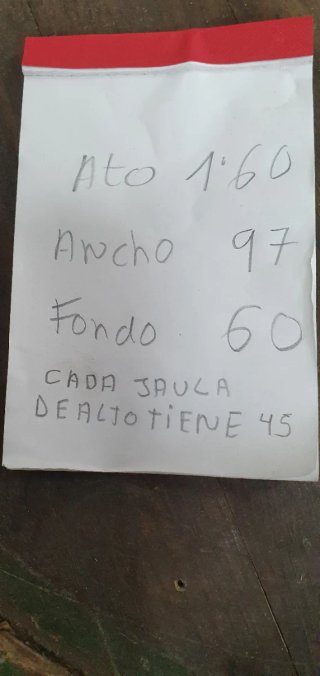 Ato 1'60
Ancho 97
Fondo 60
CADA JAULA
DE ALTO TiENE 45